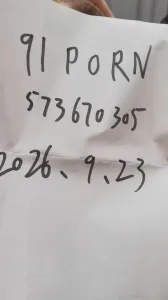 91 PORN
573670305
2026、9、23